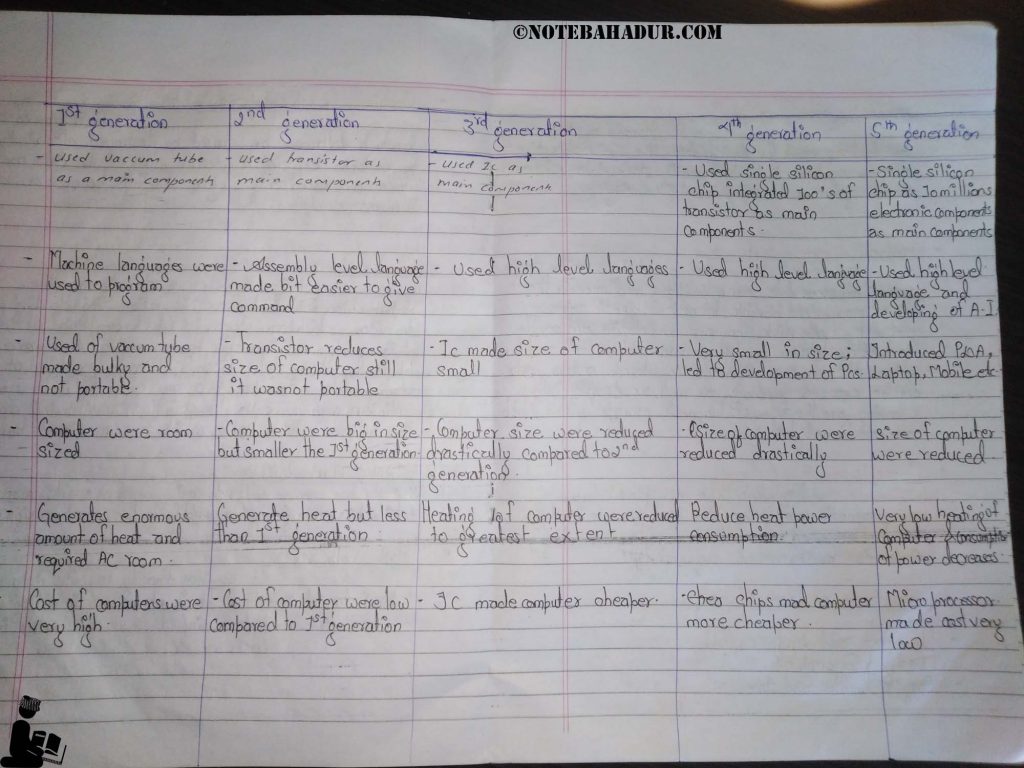 ©NOTEBAHADUR.COM
1st generation
2nd generation
3rd generation
4th generation
5th generation
- Used vaccum tube
as a main component
- used transistor as
main component
- Used Ic as
main component
- Used single silicon
chip integrated 100's of
transistor as main
components.
- Single silicon
chip as 10 millions
electronic components
as main components
- Machine languages were
used to program
- Assembly level language
made bit easier to give
command
- Used high level languages
- Used high level language
- Used high level
language and
developing of A.I
- Used of vaccum tube
made bulky and
not portable.
- Transistor reduces
size of computer still
it wasnot portable
- Ic made size of computer
small
- Very small in size;
led to development of Pcs.
Introduced
Laptop, Mobile etc
- Computer were room
sized
- Computer were big in size
but smaller the 1st generation
- Computer size were reduced
drastically compared to 2nd
generation.
- size of computer were
reduced drastically
size of computer
were reduced.
- Generates enormous
amount of heat and
required AC room.
Generate heat but less
than 1st generation
Heating of computer were reduced
to greatest extent
Reduce heat power
consumption.
Very low heating of
Computer
of power decreases
Cost of computers were
very high.
- Cost of computer were low
compared to 1st generation
- IC made computer cheaper.
- chips mad computer
more cheaper.
Microprocessor
made cost very
low